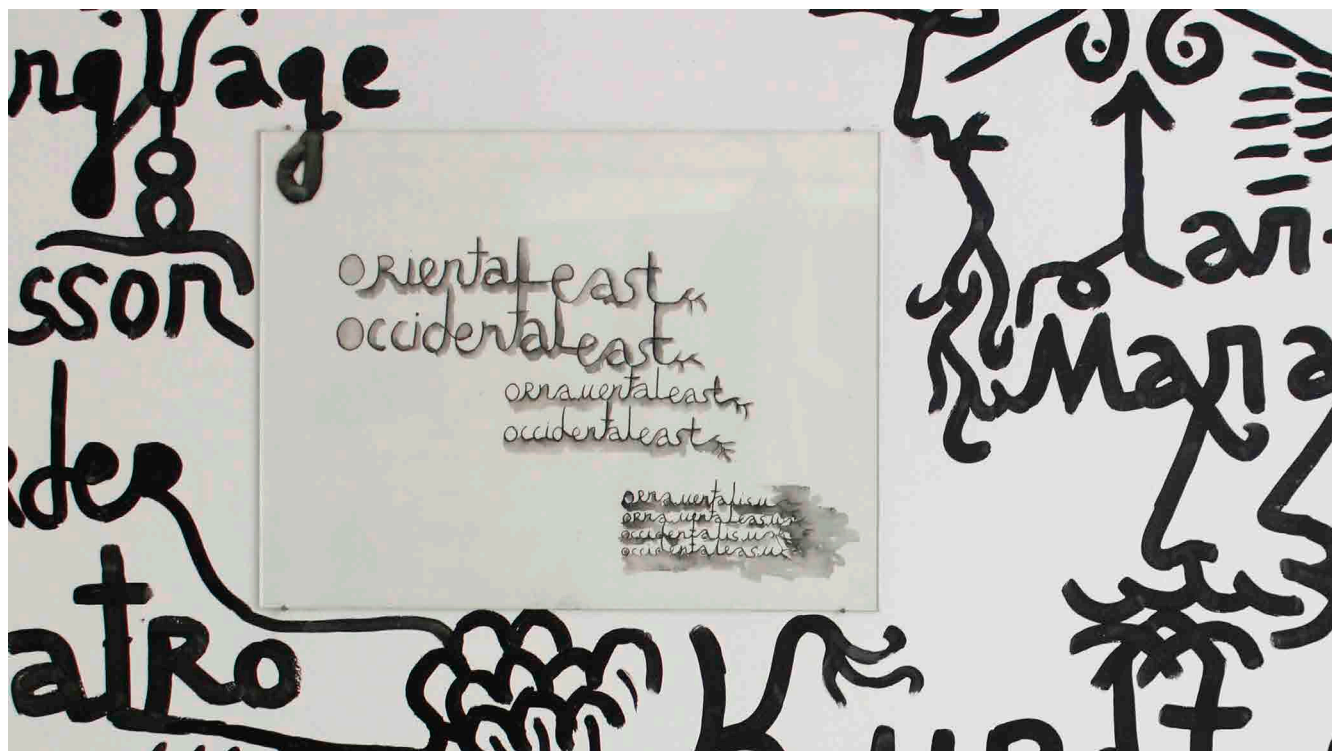 nguage
sson
der
atro
orientaleast
occidentaleast
ornamentaleast
occidentaleast
ornamentalism
ornamentaleasm
occidentalism
occidentaleasm
an-
Mana
Kunst